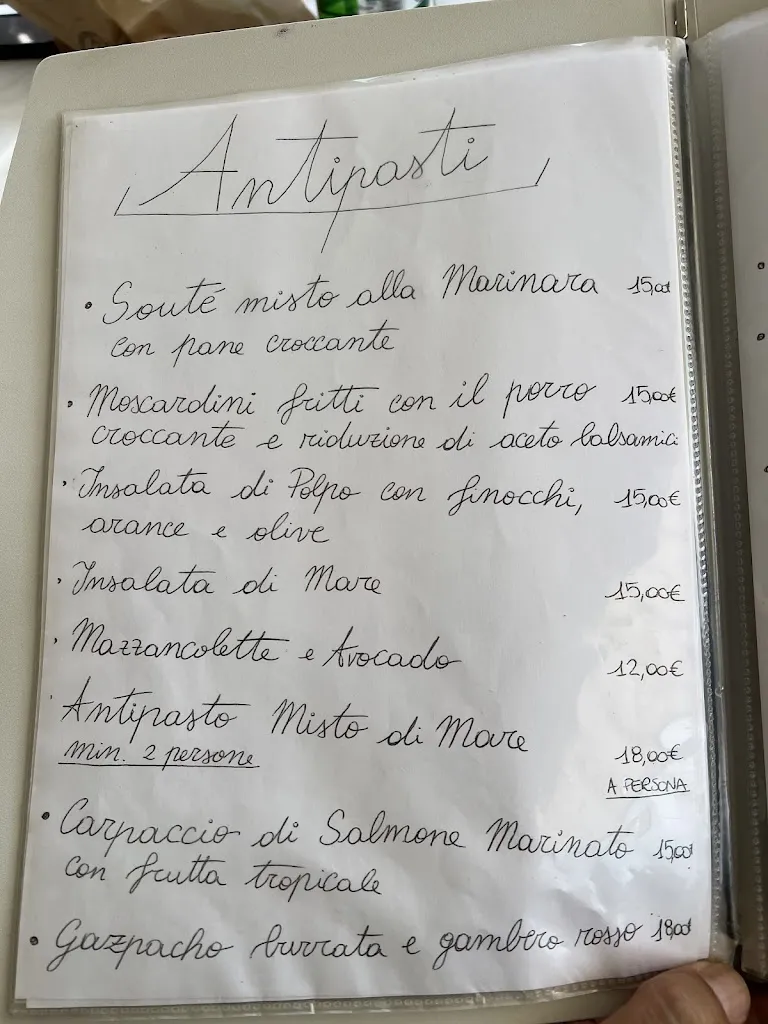 Antipasti
• Souté misto alla Marinara 15,00€
con pane croccante
• Moscardini fritti con il porro 15,00€
croccante e riduzione di aceto balsamico
• Insalata di Polpo con finocchi, 15,00€
arance e olive
• Insalata di Mare 15,00€
• Mazzancolette e Avocado 12,00€
• Antipasto Misto di Mare 18,00€
min. 2 persone A PERSONA
• Carpaccio di Salmone Marinato 15,00€
con frutta tropicale
• Gazpacho burrata e gambero rosso 18,00€